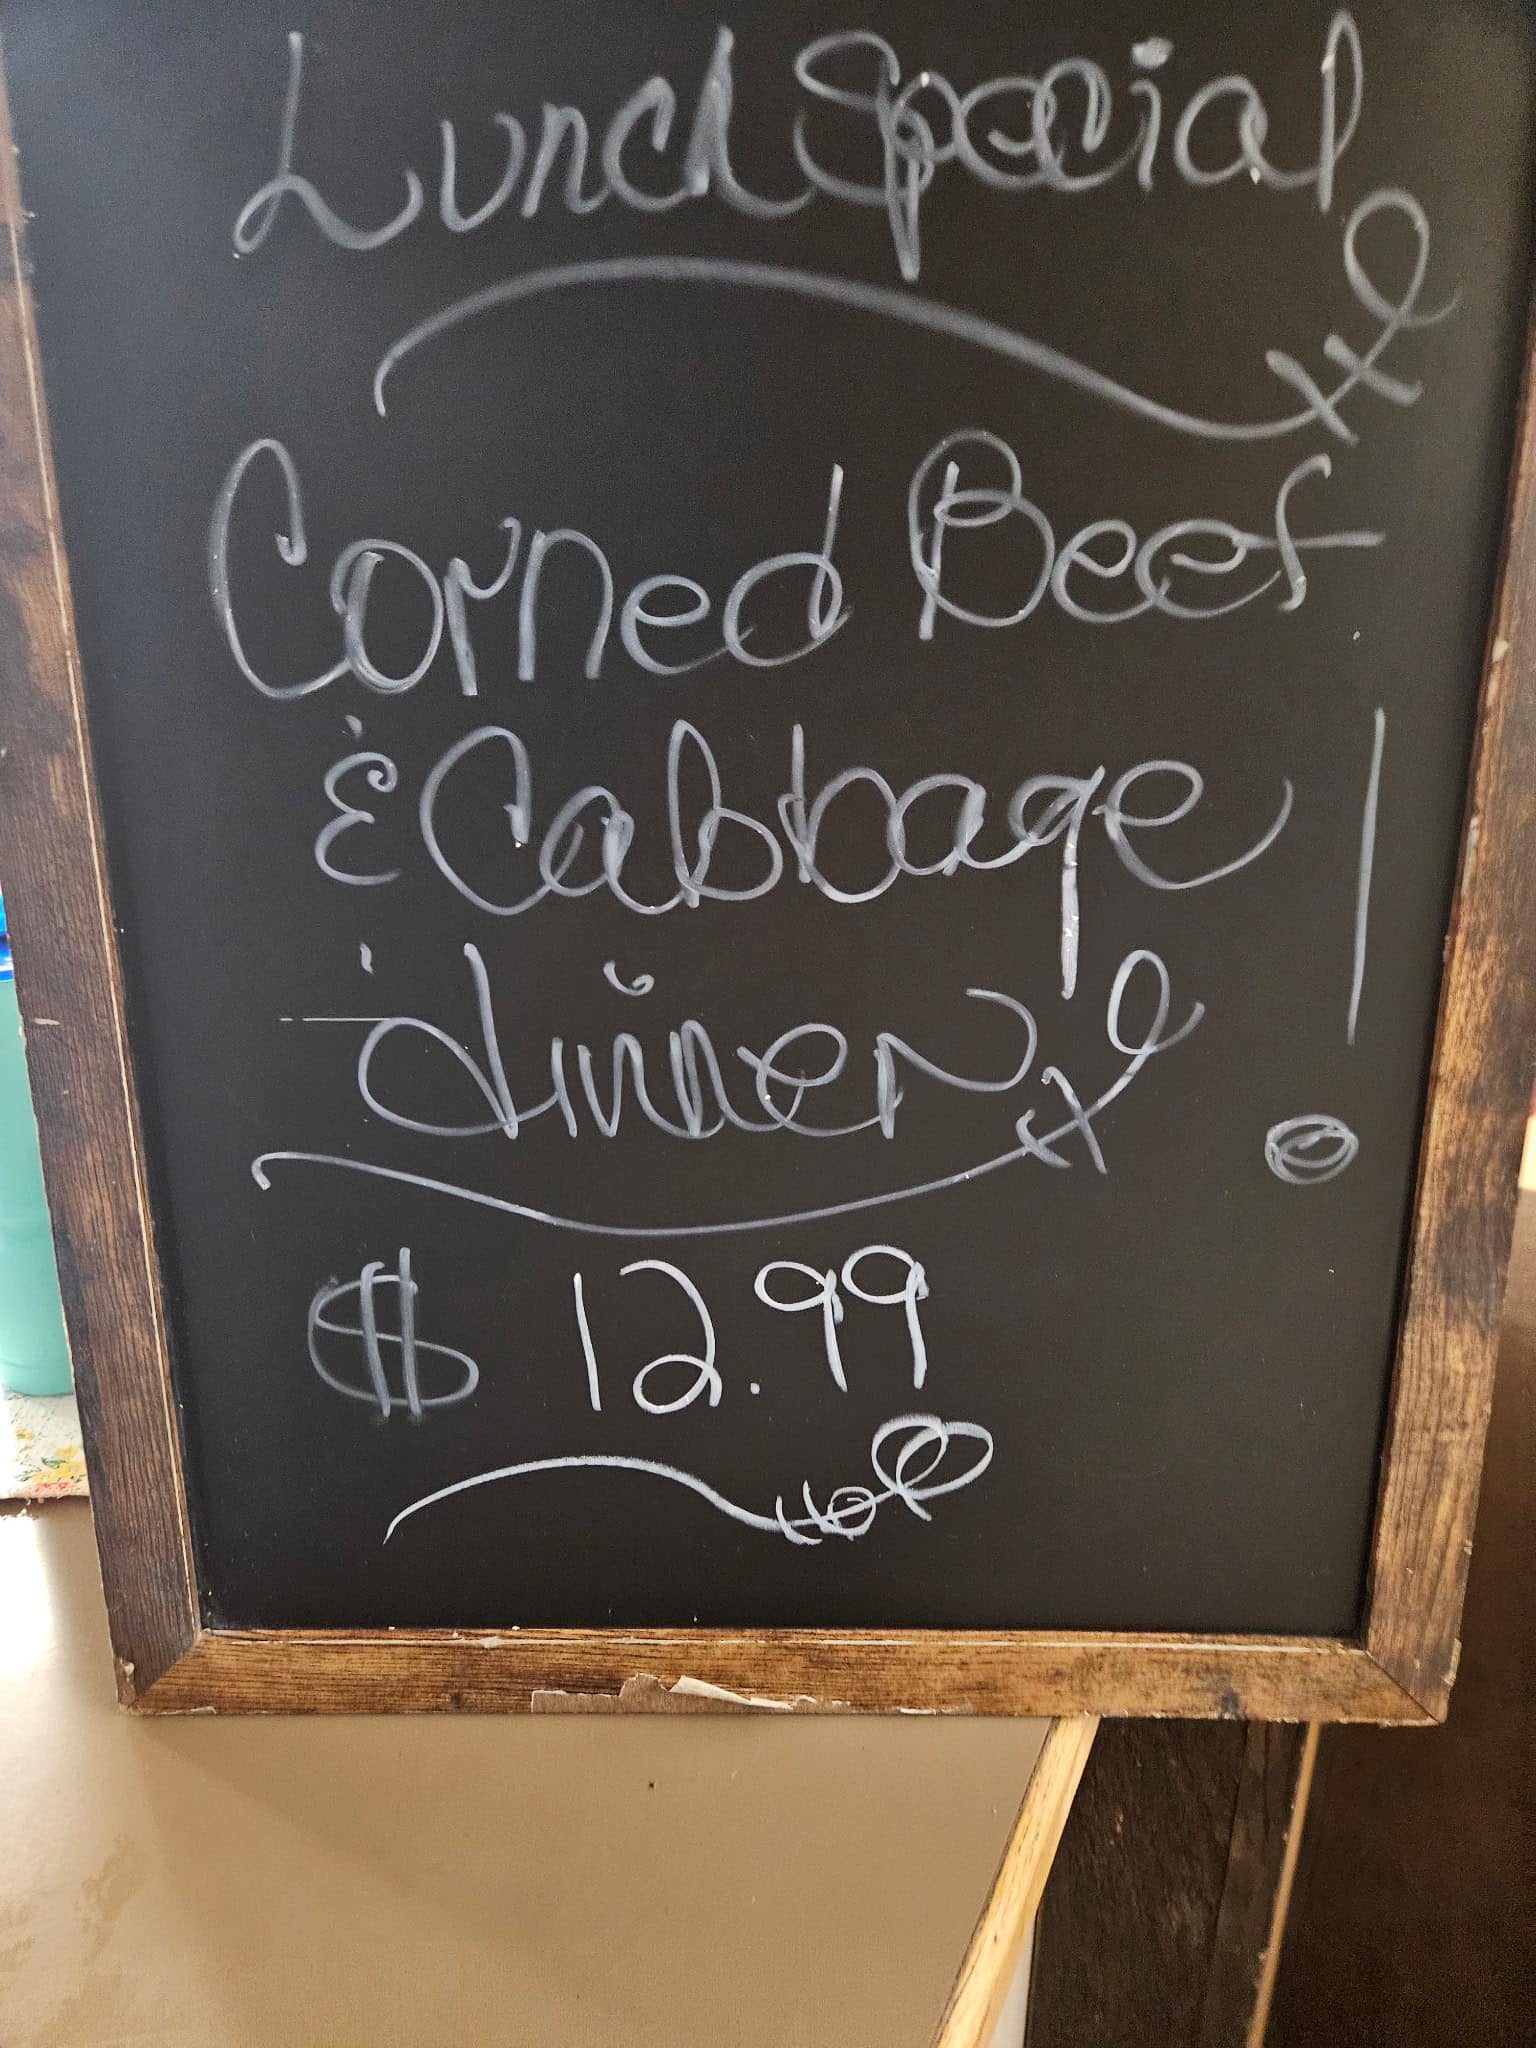 Lunch Special
Corned Beef
& Cabbage!
dinner
$ 12.99